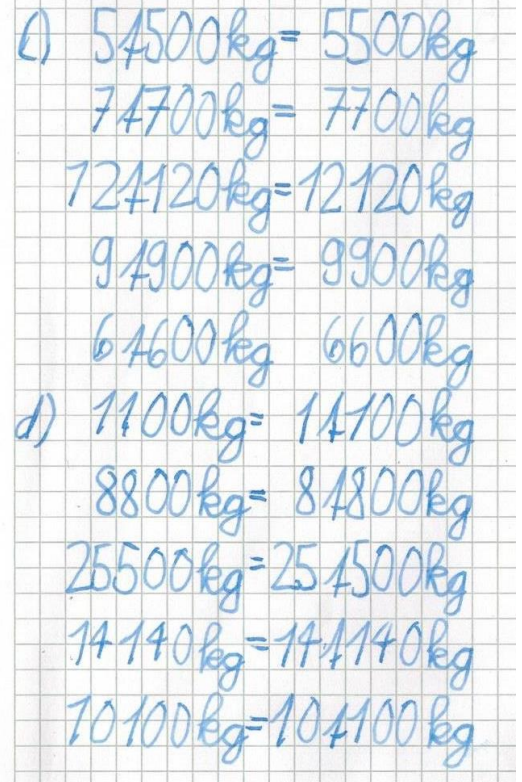 c) 5t500kg = 5500kg
7t700kg = 7700kg
12t120kg = 12120kg
9t900kg = 9900kg
6t600kg 6600kg
d) 1100kg = 1t100kg
8800kg = 8t800kg
25500kg = 25t500kg
14140kg = 14t140kg
10100kg = 10t100kg